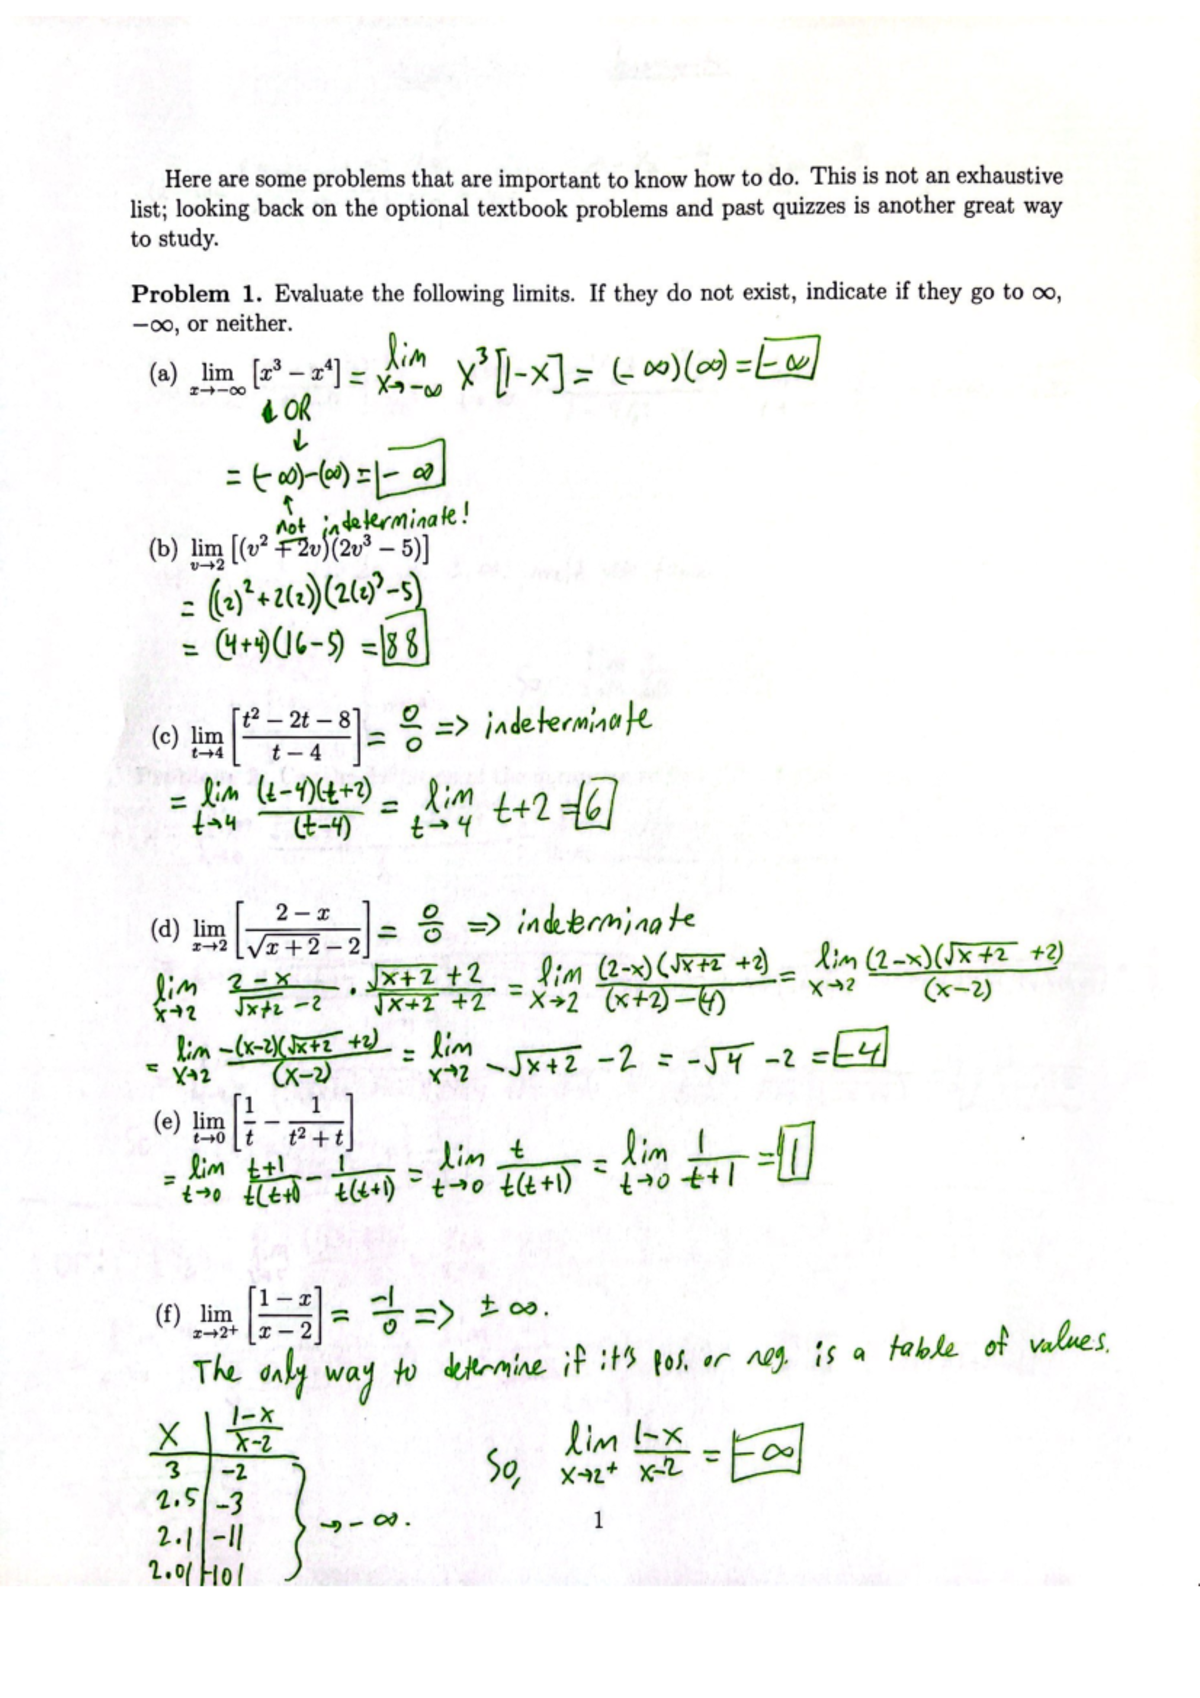 Here are some problems that are important to know how to do. This is not an exhaustive
list; looking back on the optional textbook problems and past quizzes is another great way
to study.
Problem 1. Evaluate the following limits. If they do not exist, indicate if they go to ∞,
−∞, or neither.
(a) lim x→−∞ [x³ − x⁴] = lim x→−∞ x³[1−x] = (−∞)(∞) = −∞
↓ OR
↓
= (−∞)−(∞) = −∞
↑
not indeterminate!
(b) lim v→2 [(v² + 2v)(2v³ − 5)]
= ((2)²+2(2))(2(2)³−5)
= (4+4)(16−5) = 88
(c) lim t→4 [(t² − 2t − 8)/(t − 4)] = 0/0 => indeterminate
= lim t→4 (t−4)(t+2)/(t−4) = lim t→4 t+2 = 6
(d) lim x→2 [(2 − x)/(√(x + 2) − 2)] = 0/0 => indeterminate
lim x→2 (2−x)/(√(x+2) −2) · (√(x+2) +2)/(√(x+2) +2) = lim x→2 (2−x)(√(x+2) +2)/((x+2)−(4)) = lim x→2 (2−x)(√(x+2) +2)/(x−2)
= lim x→2 −(x−2)(√(x+2) +2)/(x−2) = lim x→2 −√(x+2) −2 = −√4 −2 = −4
(e) lim t→0 [1/t − 1/(t² + t)]
= lim t→0 (t+1)/(t(t+1)) − 1/(t(t+1)) = lim t→0 t/(t(t+1)) = lim t→0 1/(t+1) = 1
(f) lim x→2+ [(1 − x)/(x − 2)] = −1/0 => ± ∞.
The only way to determine if it's pos. or neg. is a table of values.
x | (1−x)/(x−2)
3 | −2
So, lim x→2+ (1−x)/(x−2) = −∞
2.5 | −3
2.1 | −11
→ −∞.
2.01 | −101
1